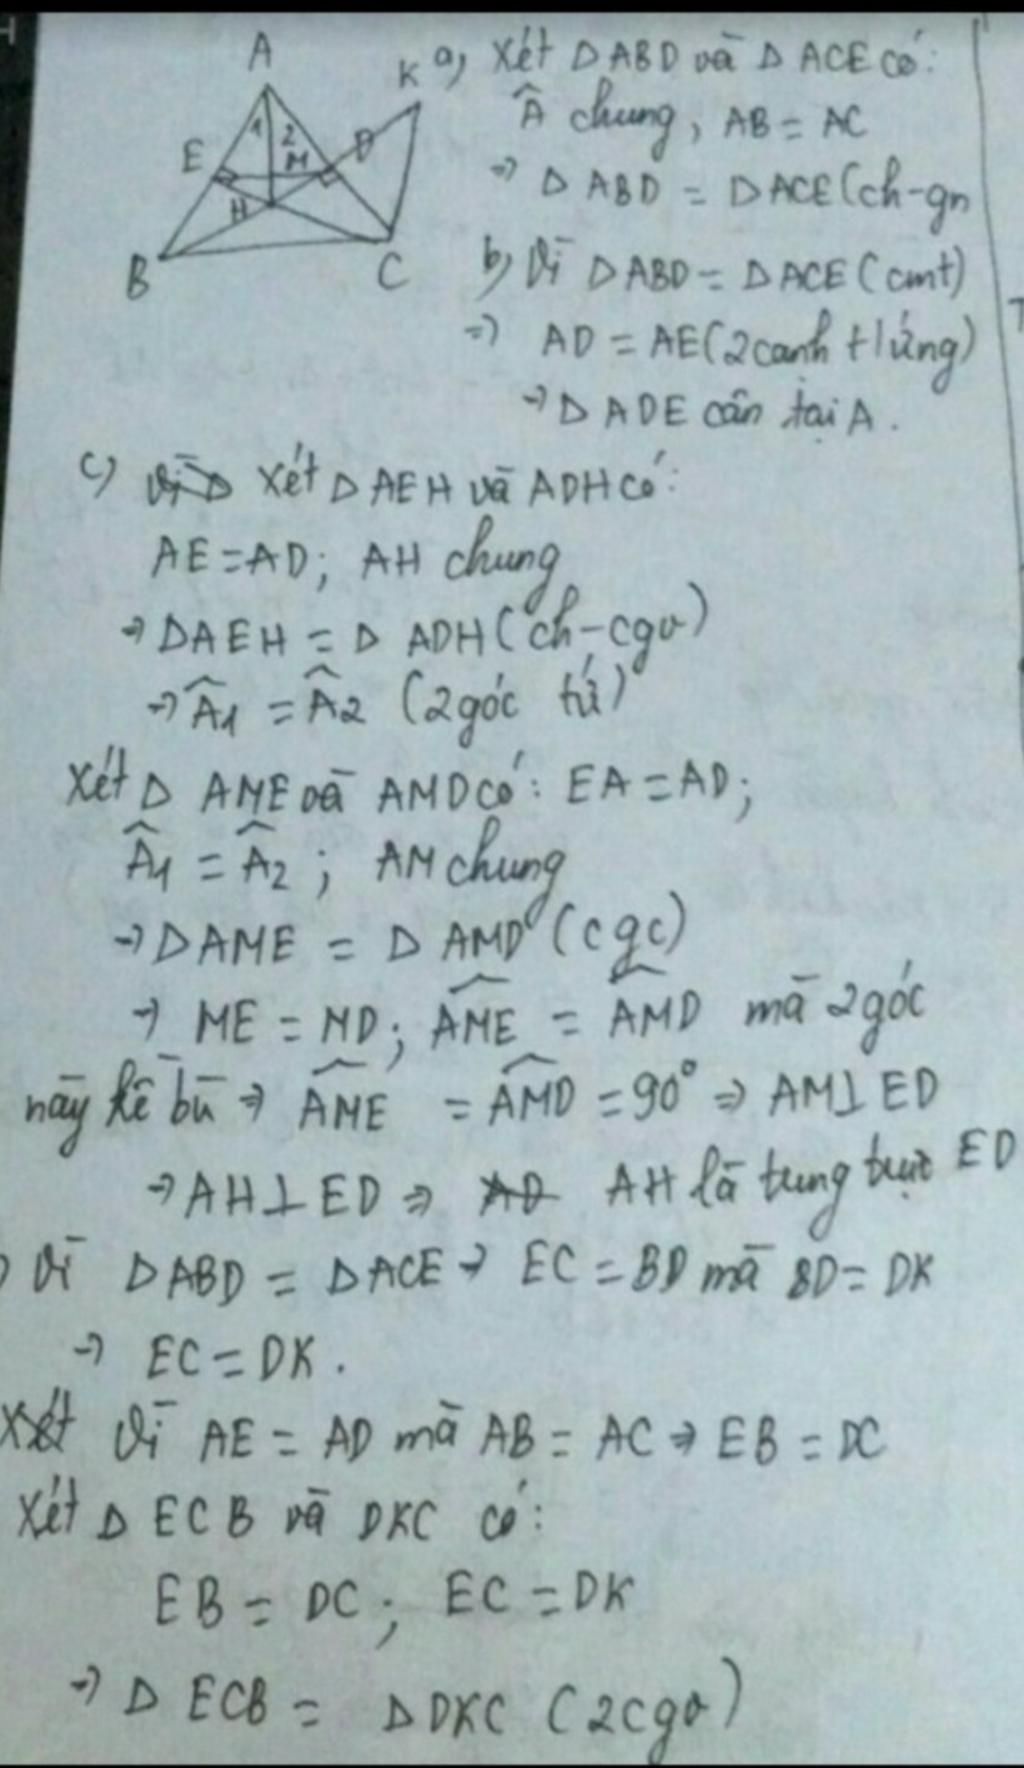 A
K
E
1
2
M
D
H
B
C
a) Xét Δ ABD và Δ ACE có:
Â chung, AB = AC
→ Δ ABD = Δ ACE (ch-gn
b) Vì Δ ABD = Δ ACE (cmt)
=) AD = AE (2 cạnh t/ứng)
→ Δ ADE cân tại A.
c) Xét Δ AEH và ADH có:
AE = AD; AH chung
→ Δ AEH = Δ ADH (ch-cgv)
→ Â1 = Â2 (2 góc tứ)
Xét Δ AME và AMD có: EA = AD;
Â1 = Â2; AM chung
→ Δ AME = Δ AMD (cgc)
→ ME = MD; \widehat{AME} = \widehat{AMD} mà 2 góc
này kề bù → \widehat{AME} = \widehat{AMD} = 90° => AM⊥ED
→ AH⊥ED => AH là trung trực ED
) Vì Δ ABD = Δ ACE → EC = BD mà BD = DK
→ EC = DK.
Vì AE = AD mà AB = AC → EB = DC
Xét Δ ECB và DKC có:
EB = DC; EC = DK
→ Δ ECB = Δ DKC (2cgv)